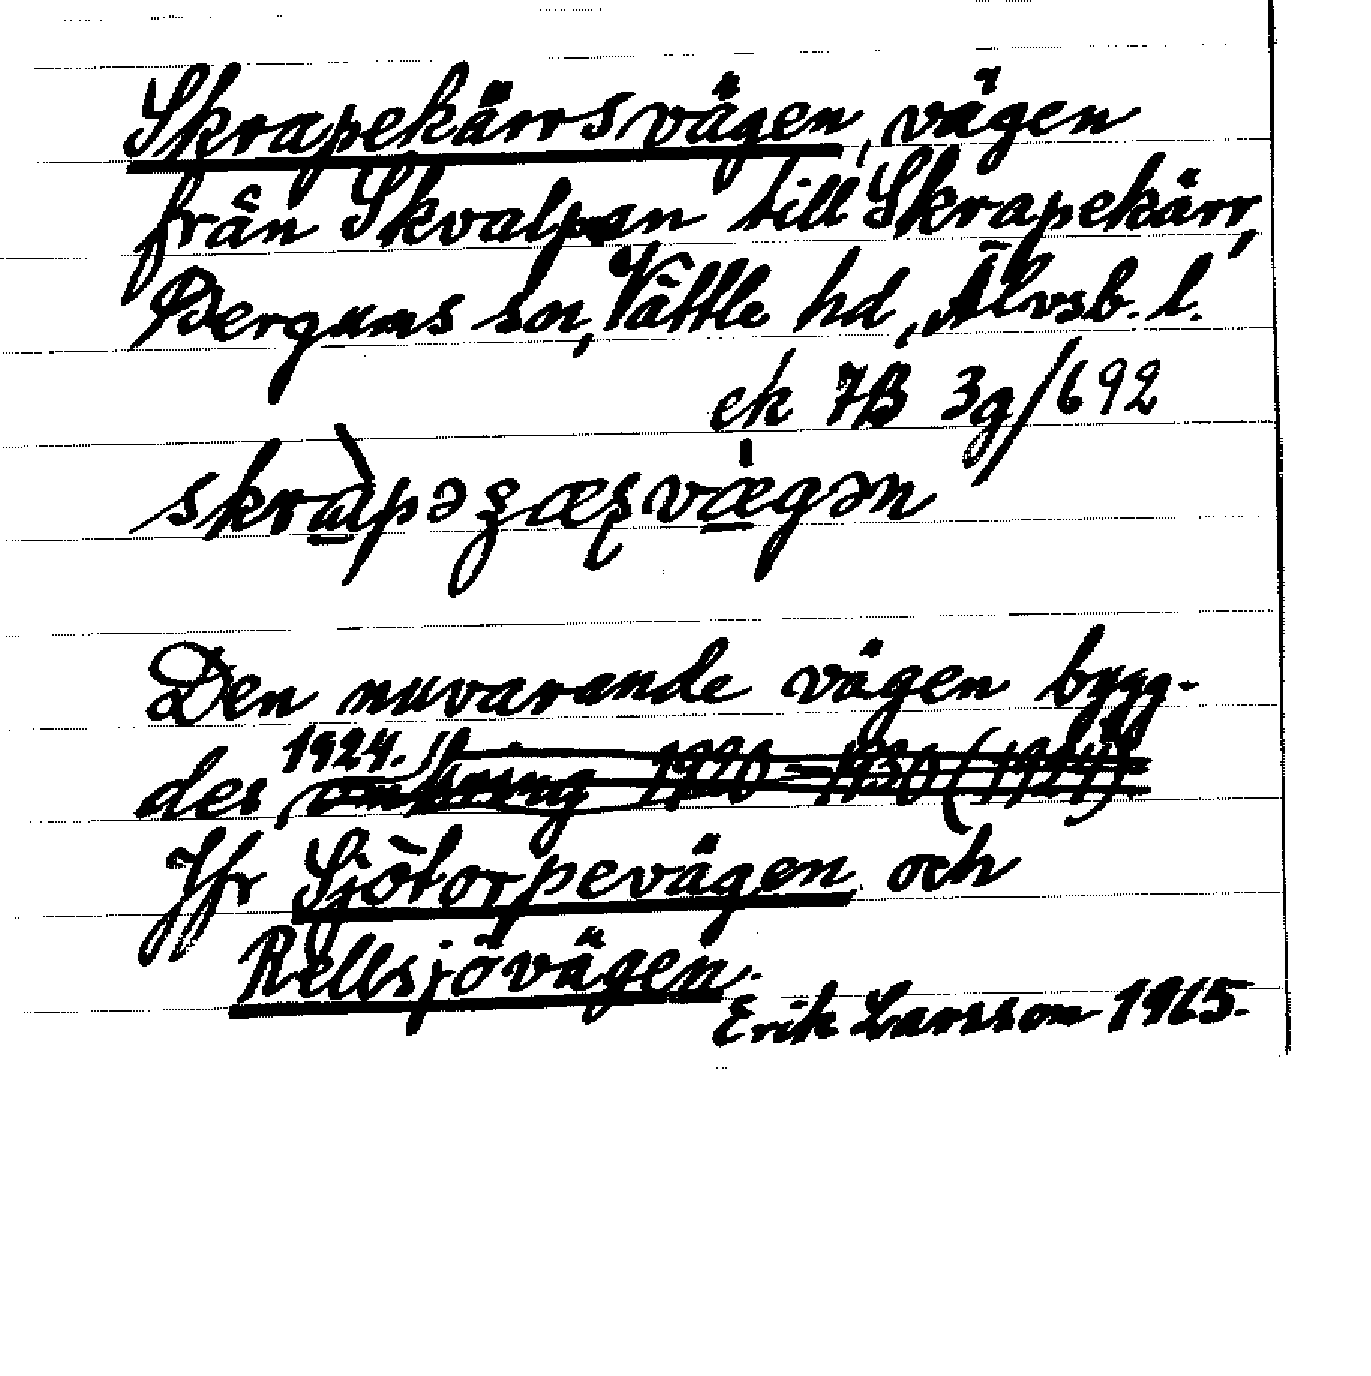 Skrapekärrsvägen, vägen
från Skvalpan till Skrapekärr,
Bergums sn, Vättle hd, Älvsb. l.
ek 7B 3g/692
skràpəʒæʂvǽgən
Den nuvarande vägen bygg-
des 1924. omkring 1920-1930 (1924)
Jfr Sjötorpevägen och
Rellsjövägen.
Erik Larsson 1965.